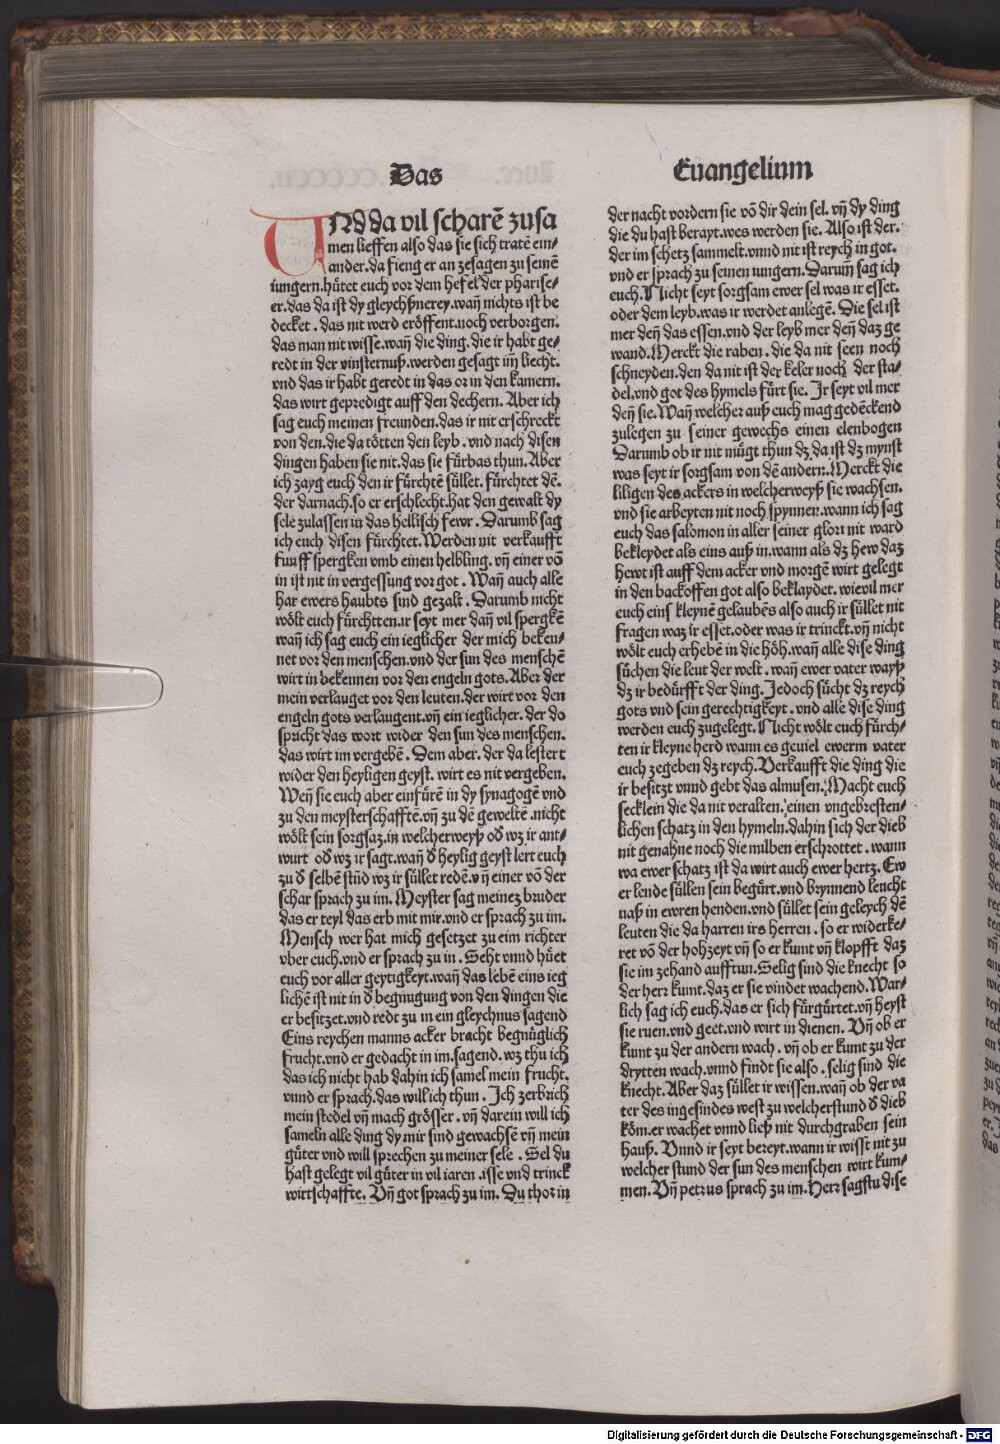 Das
Euangelium
VNd da vil scharē zusa
men lieffen also das sie sich tratē ein⸗
ander. da fieng er an zesagen zu seinē
iungern. hütet euch vor dem hefel der pharise⸗
er. das da ist dy gleychßnerey. wañ nichts ist be
decket . das nit werd eröffent. noch verborgen.
das man nit wisse. wañ die ding. die ir habt ge⸗
redt in der vinsternuß. werden gesagt im̄ liecht.
vnd das ir habt geredt in das or in den kamern.
das wirt gepredigt auff den dechern. Aber ich
sag euch meinen freunden. das ir nit erschreckt
von den. die da tötten den leyb . vnd nach disen
dingen haben sie nit. das sie fürbas thun. Aber
ich zayg euch den ir fürchtē süllet. fürchtet dē.
der darnach. so er erschlecht. hat den gewalt dy
sele zulassen in das hellisch fewr . Darumb sag
ich euch disen fürchtet. Werden nit verkaufft
fünff spergken vmb einen helbling. vñ einer võ
in ist nit in vergessung vor got . Wañ auch alle
har ewers haubts sind gezalt . Darumb nicht
wölt euch fürchtten. ir seyt mer dañ vil spergkē
wañ ich sag euch ein ieglicher der mich beken⸗
net vor den menschen. vnd der sun des menschē
wirt in bekennen vor den engeln gots. Aber der
mein verlauget vor den leuten. der wirt vor den
engeln gots verlaugent. vñ ein ieglicher. der do
spricht das wort wider den sun des menschen.
das wirt im vergebē . Dem aber. der da lestert
wider den heyligen geyst. wirt es nit vergeben.
Weñ sie euch aber einfürē in dy synagogē vnd
zu den meysterschafftē. vñ zu dē geweltē . nicht
wölt sein sorgsaz. in welcherweyß od̕ wz ir ant⸗
wurt od̕ wz ir sagt. wañ d̕ heylig geyst lert euch
zu d̕ selbē stūd wz ir süllet redē. vñ einer võ der
schar sprach zu im. Meyster sag meinez bruder
das er teyl das erb mit mir. vnd er sprach zu im.
Mensch wer hat mich gesetzet zu eim richter
vber euch. vnd er sprach zu in . Seht vnnd hüet
euch vor aller geytigkeyt. wañ das lebē eins ieg
lichē ist nit in d̕ begnügung von den dingen die
er besitzet. vnd redt zu in ein gleychnus sagend
Eins reychen manns acker bracht begnüglich
frucht. vnd er gedacht in im. sagend. wz thu ich
das ich nicht hab dahin ich samel mein frucht.
vnnd er sprach. das will ich thun . Ich zerbrich
mein stedel vñ mach grösser . vñ darein will ich
sameln alle ding dy mir sind gewachsē vñ mein
güter vnd will sprechen zu meiner sele . Sel du
hast gelegt vil güter in vil iaren . isse vnd trinck
wirtschaffte. Vñ got sprach zu im. Du thor in
der nacht vordern sie võ dir dein sel. vñ dy ding
die du hast berayt. wes werden sie. Also ist der.
der im schetz sammelt. vnnd nit ist reych in got.
vnd er sprach zu seinen iungern. Darum̄ sag ich
euch. Nicht seyt sorgsam ewer sel was ir esset.
oder dem leyb. was ir werdet anlegē. Die sel ist
mer deñ das essen. vnd der leyb mer deñ daz ge
wand. Merckt die raben . die da nit seen noch
schneyden. den da nit ist der keler noch der sta⸗
del. vnd got des hymels fürt sie. Ir seyt vil mer
deñ sie. Wañ welcher auß euch mag gedēckend
zulegen zu seiner gewechs einen elenbogen
Darumb ob ir nit mügt thun dz da ist dz mynst
was seyt ir sorgsam von dē andern. Merckt die
liligen des ackers in welcherweyß sie wachsen.
vnd sie arbeyten nit noch spynnen. wann ich sag
euch das salomon in aller seiner glori nit ward
bekleydet als eins auß in. wann als dz hew daz
hewt ist auff dem acker vnd morgē wirt gelegt
in den backoffen got also beklaydet. wievil mer
euch eins kleynē gelaubēs also auch ir süllet nit
fragen waz ir esset. oder was ir trinckt. vñ nicht
wölt euch erhebē in die höh. wañ alle dise ding
süchen die leut der welt . wañ ewer vater wayß
dz ir bedürfft der ding. Jedoch sücht dz reych
gots vnd sein gerechtigkeyt . vnd alle dise ding
werden euch zugelegt. Nicht wölt euch fürch⸗
ten ir kleyne herd wann es geuiel ewerm vater
euch zegeben dz reych. Verkaufft die ding die
ir besitzt vnnd gebt das almusen. Macht euch
secklein die da nit veralten. einen vngebresten⸗
lichen schatz in den hymeln. dahin sich der dieb
nit genahne noch die milben erschrottet . wann
wa ewer schatz ist da wirt auch ewer hertz. Ew
er lende süllen sein begürt. vnd brynnend leucht
uaß in ewren henden. vnd süllet sein geleych dē
leuten die da harren irs herren . so er widerke⸗
ret võ der hohzeyt vñ so er kumt vñ klopfft daz
sie im zehand aufftun. Selig sind die knecht so
der herr kumt. daz er sie vindet wachend. War⸗
lich sag ich euch. das er sich fürgürtet. vñ heyst
sie ruen. vnd geet. vnd wirt in dienen. Vñ ob er
kumt zu der andern wach . vñ ob er kumt zu der
drytten wach. vnnd findt sie also . selig sind die
knecht. Aber daz süllet ir wissen. wañ ob der va
ter des ingesindes west zu welcherstund d̕ dieb
köm. er wachet vnnd ließ nit durchgraben sein
hauß. Vnnd ir seyt bereyt. wann ir wisst nit zu
welcher stund der sun des menschen wirt kum⸗
men. Vñ petrus sprach zu im. Herr sagstu dise
Digitalisierung gefördert durch die Deutsche Forschungsgemeinschaft - DFG